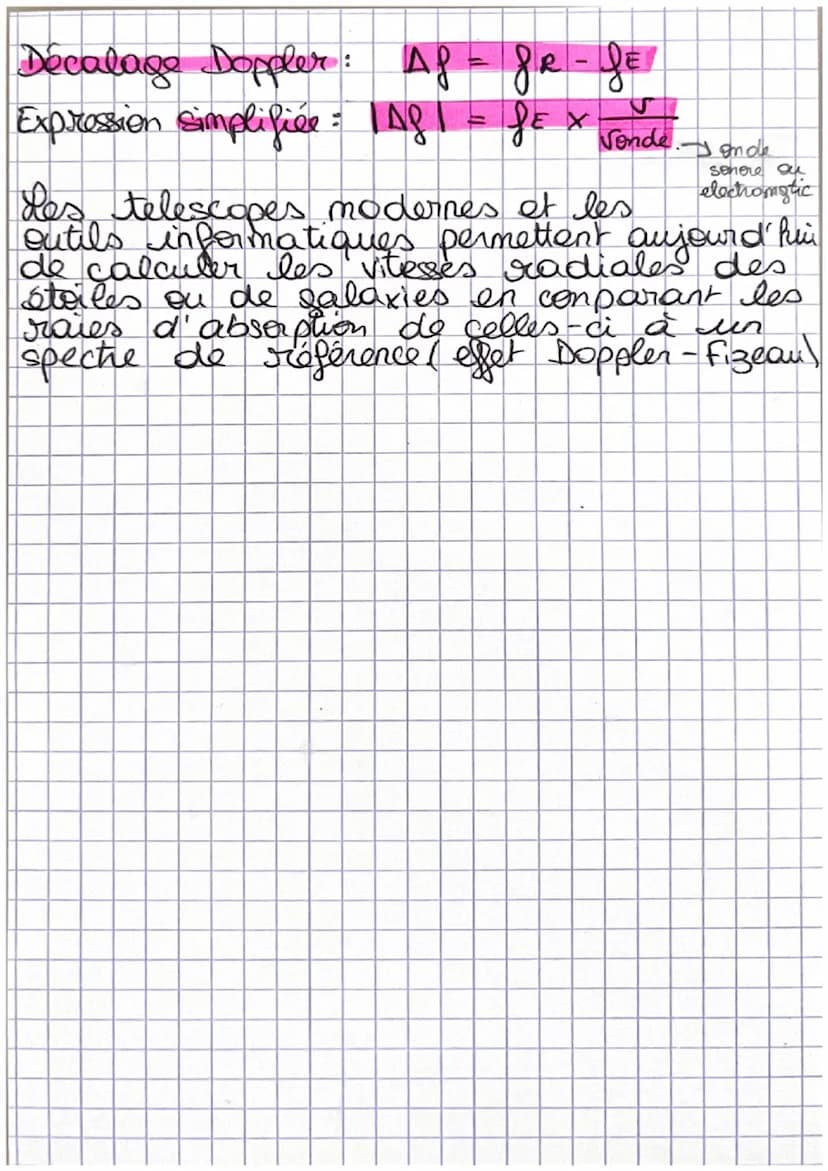 Décalage Doppler : Δf = fR - fE
Expression simplifiée : |Δf| = fE × v / vonde → onde
sonore ou
electromgtic
Les telescopes modernes et les
outils informatiques permettent aujourd'hui
de calculer les vitesses radiales des
étoiles ou de galaxies en conparant les
raies d'absorption de celles-ci à un
spectre de référence ( effet Doppler - Fizeau)